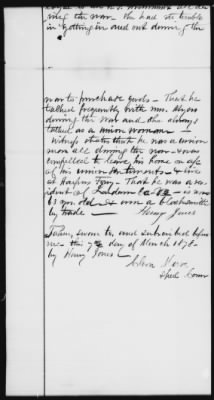 ring the war. She had no trouble
in getting in and out during the
war to purchase goods - That he
talked frequently with Mrs.
during the war and she always
talked as a union woman -
Witness states that he was a union
man all during the war & was
compelled to leave his home on a/c
of his union sentiments & live
at Harpers Ferry - That he was a res-
ident of Loudoun Co Va - is now
63 yrs old & am a blacksmith
by trade -
Henry Jones
Taken, sworn to, and subscribed before
me this 7th day of March 1878 -
by Henry Jones -
Spcl Comr